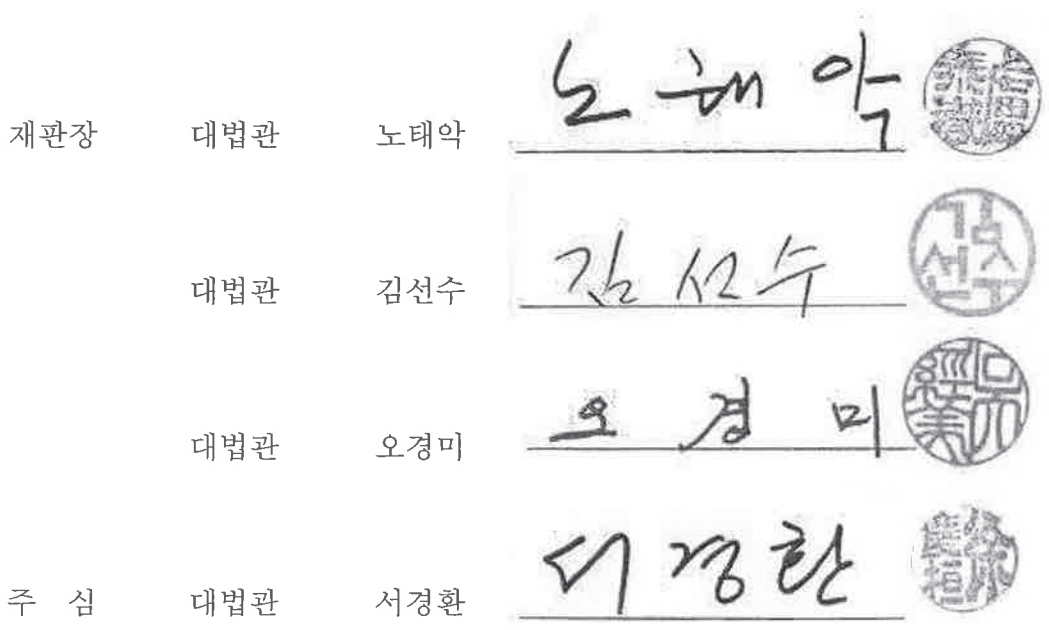 재판장 대법관 노태악 노태악
대법관 김선수 김선수 김선수
대법관 오경미 오경미 吳經美
주 심 대법관 서경환 서경환